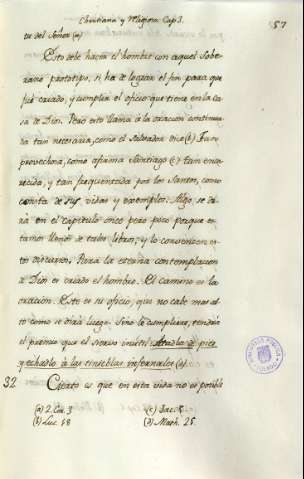 Christiana y Religiosa Cap 3. 57
tu del Señor (a)
Esto debe hacer el hombre con aquel Sobe
rano prototipo, si ha de lograr el fin para que
fue criado, y cumplir el oficio que tiene en la ca
sa de Dios. Pero esto llama à la oracion continua
da tan necesaria, como el Salvador dice (b) Tan
provechosa, como afirma Santiago (c) tan enca
recida, y tan frequentada por los Santos, como
consta de sus vidas y exemplos. Algo, se di
rà en el capitulo once pero poco porque es
tamos llenos de tales libros; y lo convencen es
tos discursos. Para la eterna contemplacion
à Dios es criado el hombre. El camino es la
oracion. Este es su oficio, que no cabe mas al
to como se dirà luego. Sino le cumpliere, tendrà
el premio que el siervo inutil: Atadlo de pies,
y echadlo à las tinieblas infernales (d)
32 Cierto es que en esta vida no es posible
(a) 2. Co. 3 (c) Jac. 5.
(b) Luc. 18 (d) Math. 25.